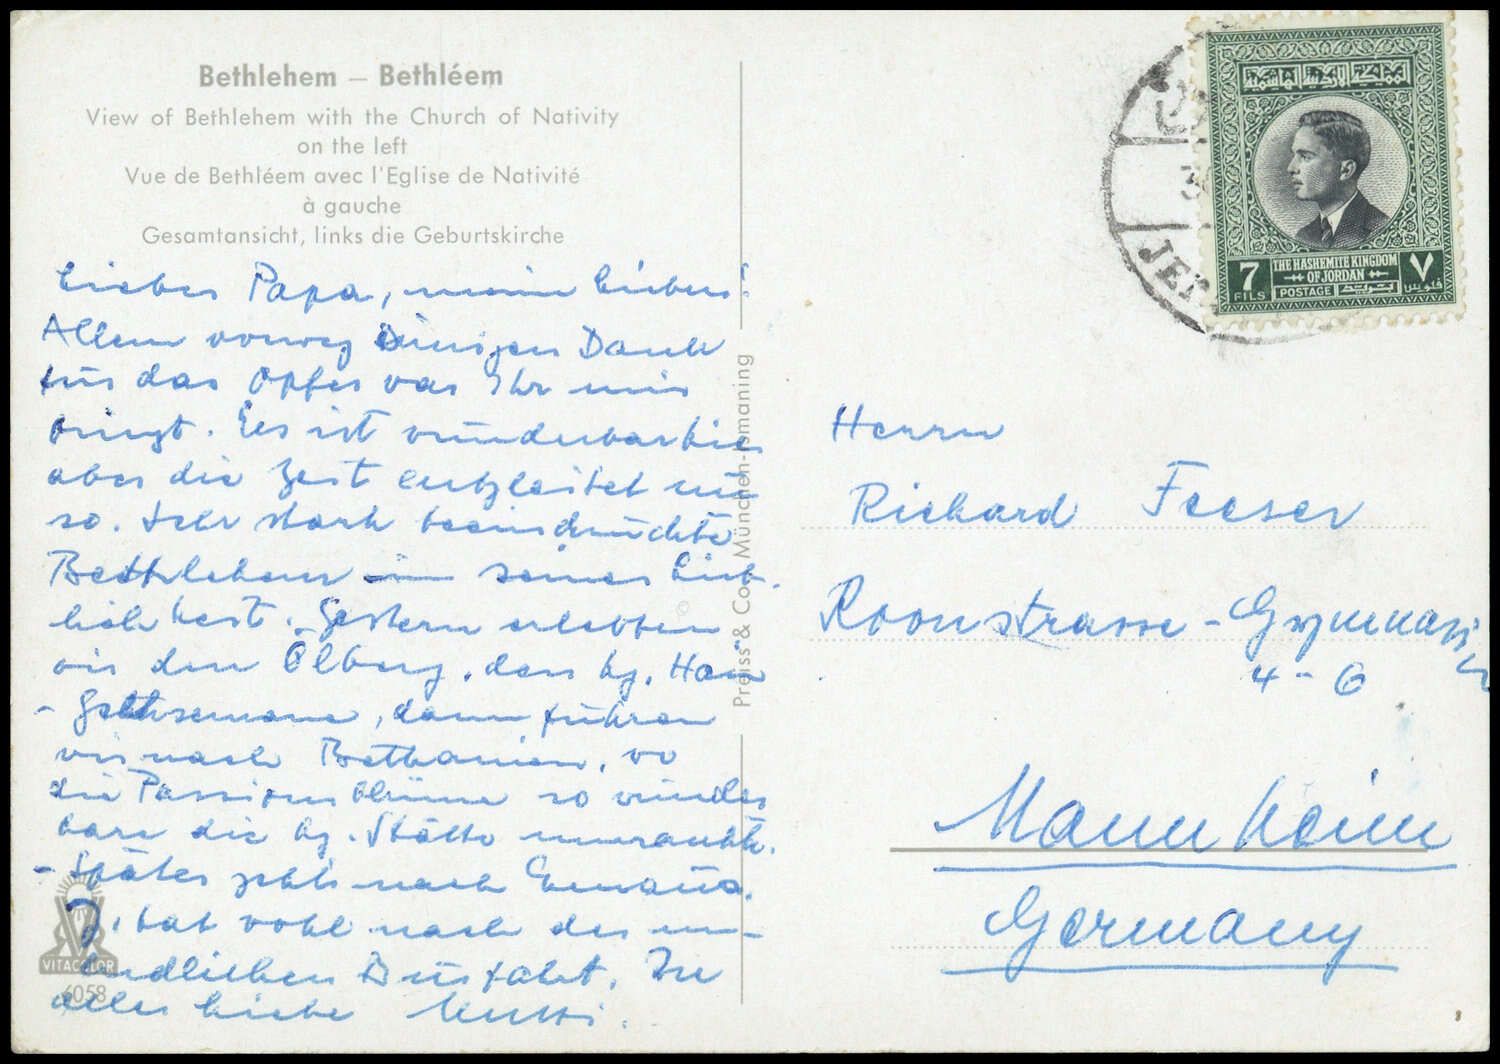 Bethlehem – Bethléem
View of Bethlehem with the Church of Nativity
on the left
Vue de Bethléem avec l'Eglise de Nativité
à gauche
Gesamtansicht, links die Geburtskirche
Lieber Papa, meine Lieben!
Allem vorweg Dank
für das Opfer was Ihr mir
bringt. Es ist wunderbar hier
aber die Zeit entgleitet nur
so. Sehr stark beeindruckte
Bethlehem in seiner Lieb-
lichkeit. Gestern erlebten
wir den Ölberg, den hg. Hain
- Gethsemane, dann fuhren
wir nach Bethanien, wo
die Passionsblume so wunder
bare die hg. Stätte umrankt.
- Später geht's nach Emmaus.
J. hat wohl nach der un-
endlichen Busfahrt. Die
alles Liebe Mutti.
Preiss & Co München-Ismaning
VITACOLOR
6058
THE HASHEMITE KINGDOM
OF JORDAN
7
FILS
POSTAGE
بريد
٧
فلوس
المملكة الاردنية الهاشمية
JER
Herrn
Richard Feeser
Roonstrasse - Gymnasium
4 - 6
Mannheim
Germany